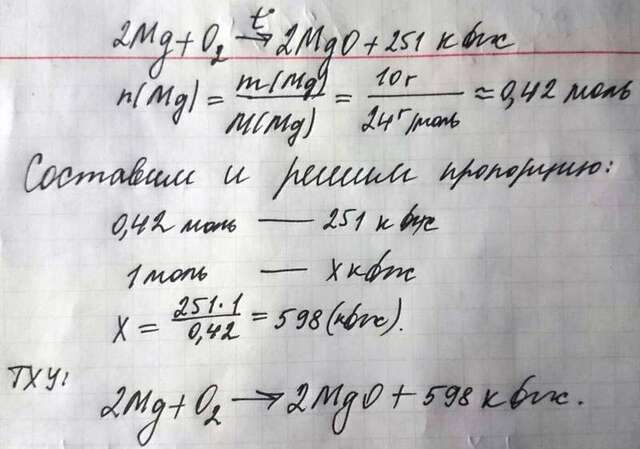 2Mg + O₂ →t° 2MgO + 251 кДж
n(Mg) = m(Mg)/M(Mg) = 10г/24г/моль ≈ 0,42 моль
Составим и решим пропорцию:
0,42 моль — 251 кДж
1 моль — X кДж
X = 251·1/0,42 = 598 (кДж).
ТХУ:
2Mg + O₂ → 2MgO + 598 кДж.